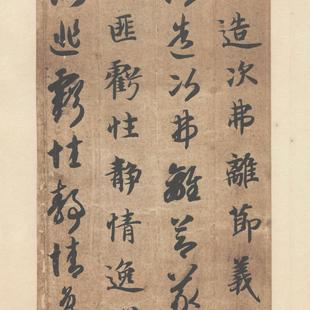 造次弗離節義
造次弗離節義
匪虧性靜情逸
匪虧性靜情